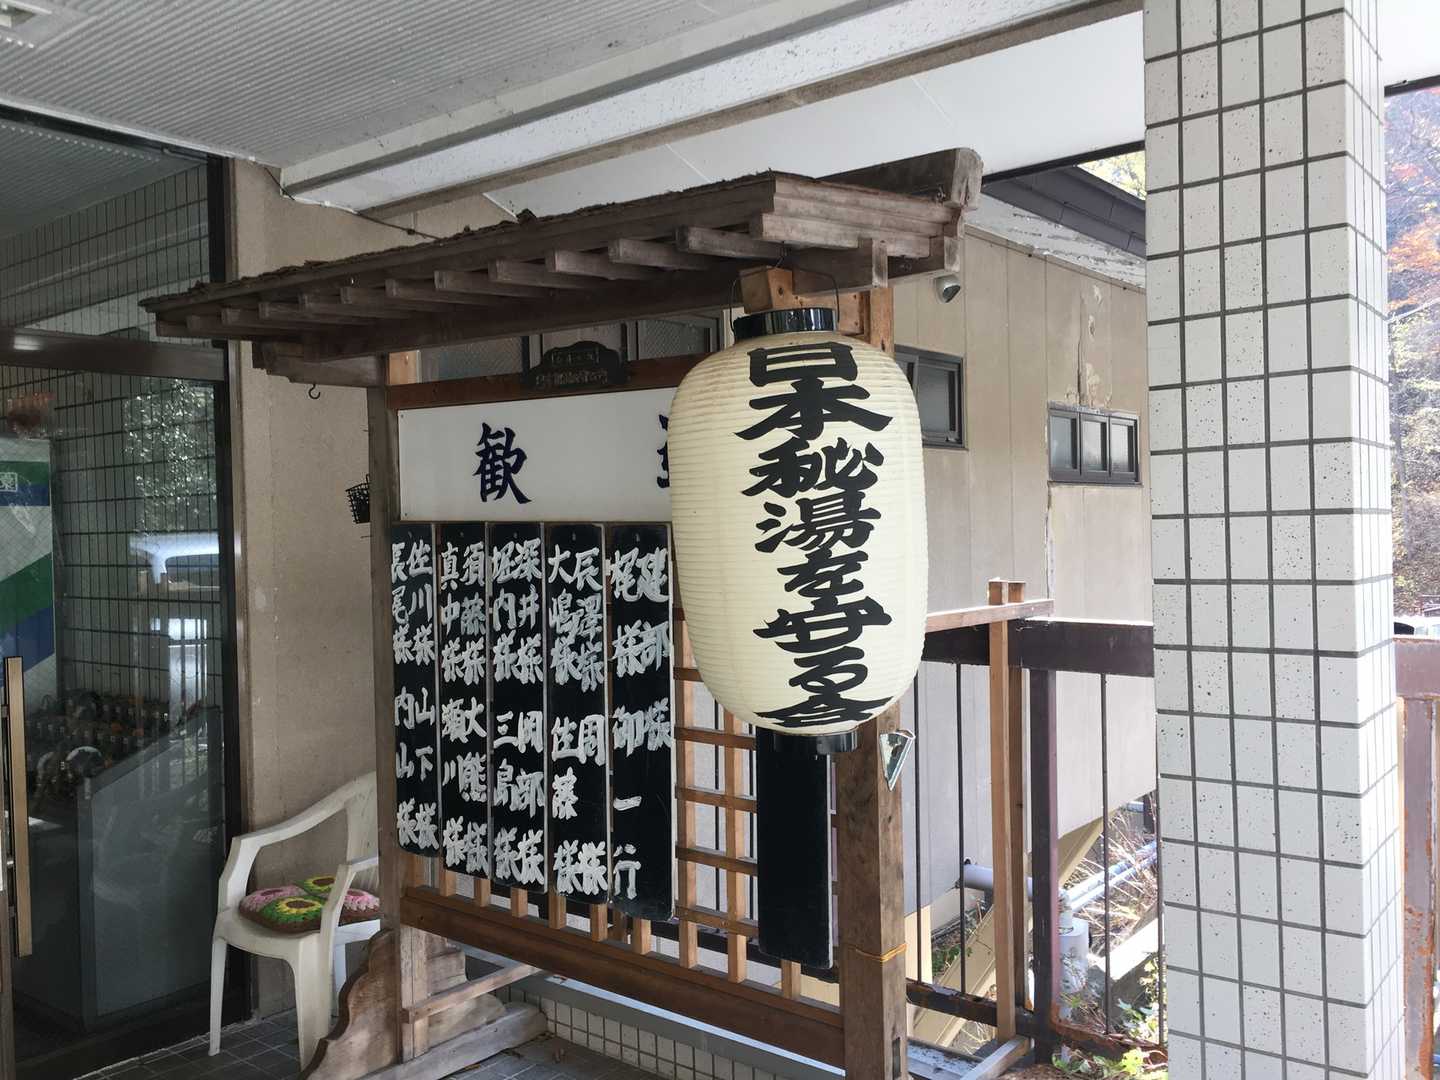 日本秘湯を守る会
歓
建部様
様 御一行
辰澤様 岡 様
大嶋様 佐藤 様
深井様 岡部様
堀内様 三島様
須藤様 大熊様
真中様 瀬川 様
佐川様 山下 様
長尾様 内山 様